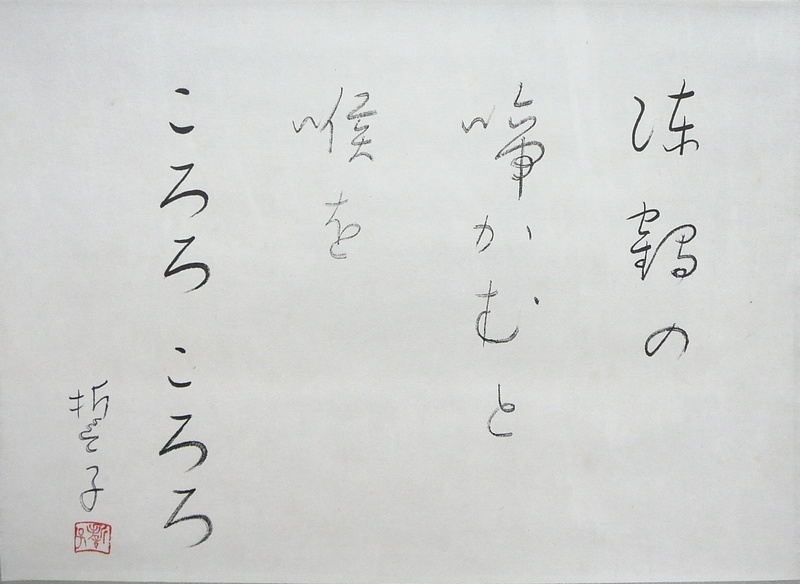 凍鶴の
啼かむと
喉を
ころろ ころろ
誓子
誓子